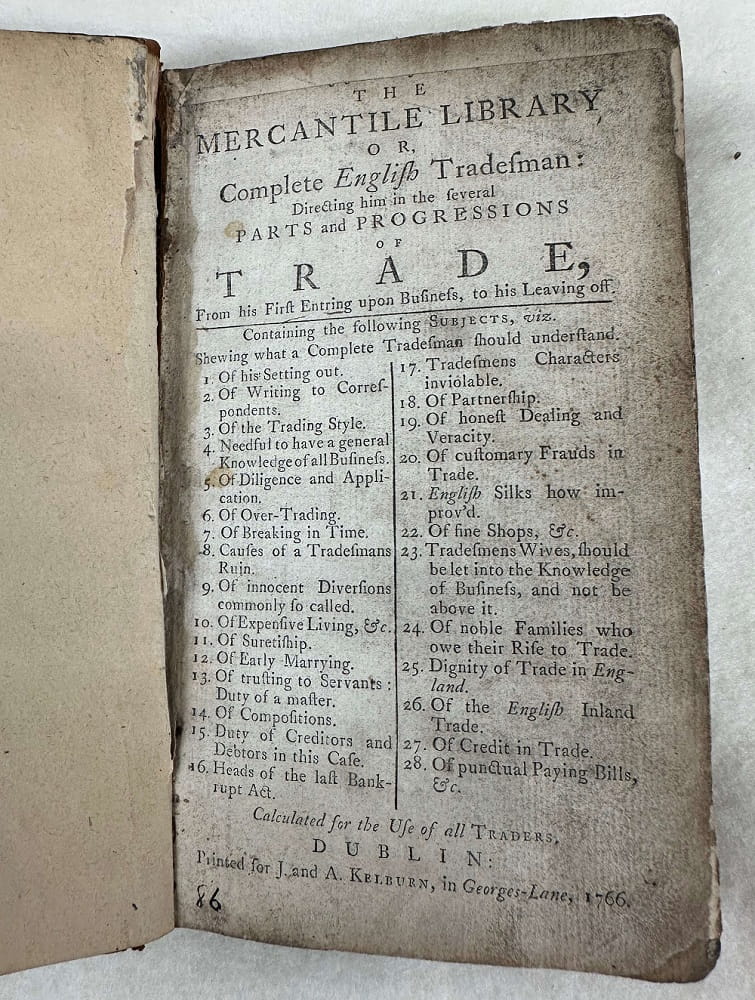 THE
MERCANTILE LIBRARY
OR,
Complete Engliſh Tradeſman:
Directing him in the ſeveral
PARTS and PROGRESSIONS
OF
TRADE,
From his Firſt Entring upon Buſineſs, to his Leaving off.
Containing the following SUBJECTS, viz.
Shewing what a Complete Tradeſman ſhould underſtand.
1. Of his Setting out.
2. Of Writing to Correſ-
pondents.
3. Of the Trading Style.
4. Needful to have a general
Knowledge of all Buſineſs.
5. Of Diligence and Appli-
cation.
6. Of Over-Trading.
7. Of Breaking in Time.
8. Cauſes of a Tradeſmans
Ruin.
9. Of innocent Diverſions
commonly ſo called.
10. Of Expenſive Living, &c.
11. Of Suretiſhip.
12. Of Early Marrying.
13. Of truſting to Servants:
Duty of a maſter.
14. Of Compoſitions.
15. Duty of Creditors and
Debtors in this Caſe.
16. Heads of the laſt Bank-
rupt Act.
17. Tradeſmens Characters
inviolable.
18. Of Partnerſhip.
19. Of honeſt Dealing and
Veracity.
20. Of cuſtomary Frauds in
Trade.
21. Engliſh Silks how im-
prov'd.
22. Of fine Shops, &c.
23. Tradeſmens Wives, ſhould
be let into the Knowledge
of Buſineſs, and not be
above it.
24. Of noble Families who
owe their Riſe to Trade.
25. Dignity of Trade in Eng-
land.
26. Of the Engliſh Inland
Trade.
27. Of Credit in Trade.
28. Of punctual Paying Bills,
&c.
Calculated for the Uſe of all TRADERS.
DUBLIN:
Printed for J. and A. KELBURN, in Georges-Lane, 1766.
86